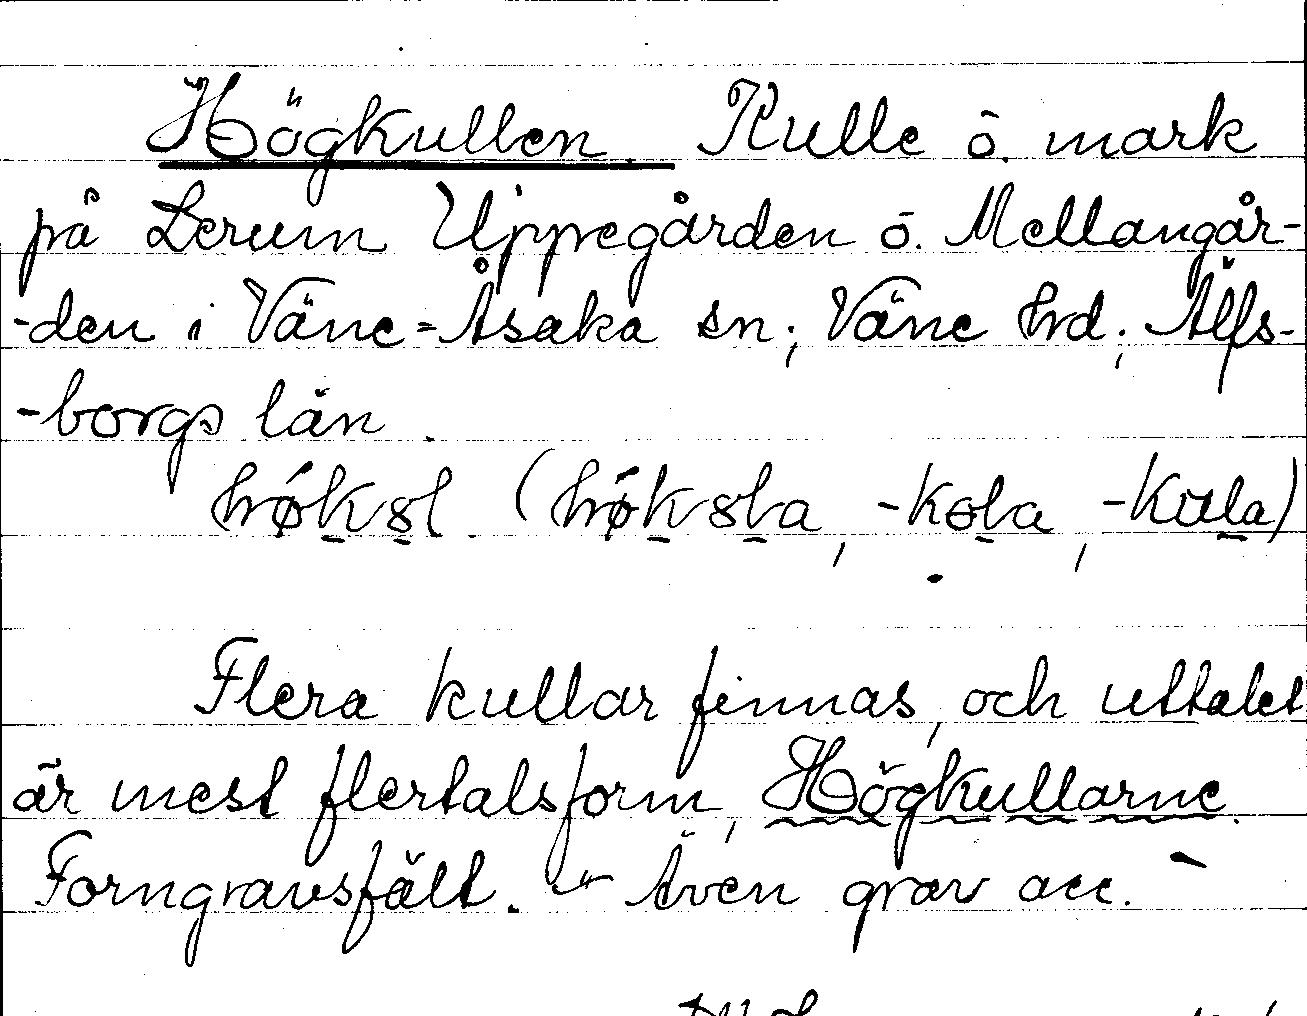 Högkullen. Kulle o. mark
på Lerum Uppegården o. Mellangår-
-den i Väne-Åsaka sn; Väne hrd; Älfs-
-borgs län.
Flera kullar finnas, och uttalet
är mest flertalsform, Högkullarne.
Forngravsfält. - Även grav acc.